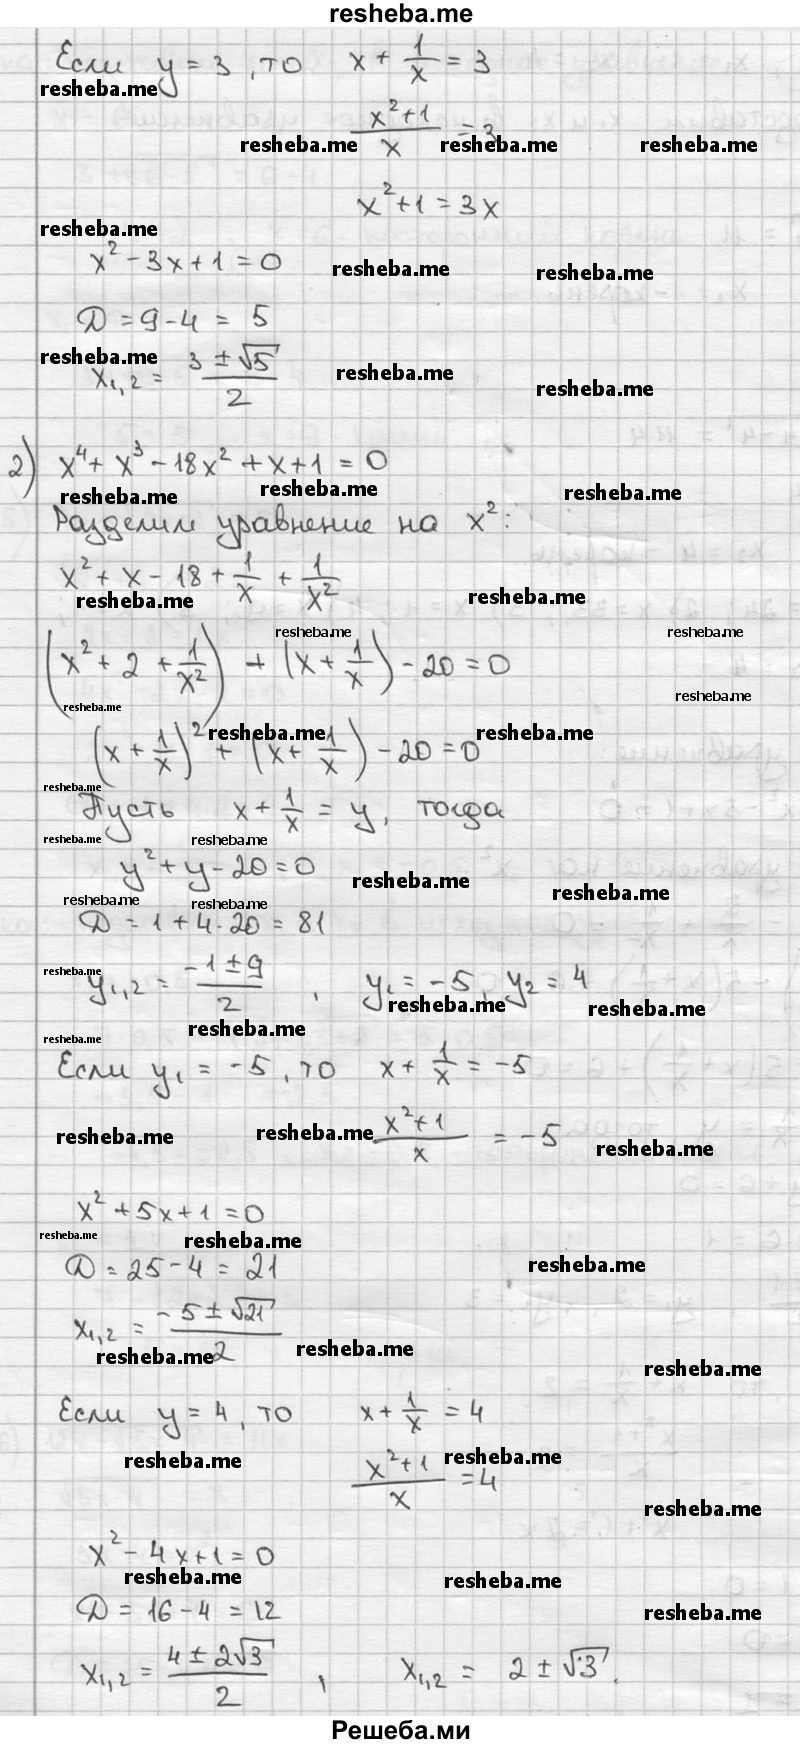 resheba.me
Если y = 3, то x + 1/x = 3
resheba.me
(x² + 1)/x = 3
resheba.me resheba.me resheba.me
x² + 1 = 3x
resheba.me
x² - 3x + 1 = 0
resheba.me resheba.me
D = 9 - 4 = 5
resheba.me
x₁,₂ = (3 ± √5)/2
resheba.me resheba.me
2) x⁴ + x³ - 18x² + x + 1 = 0
resheba.me resheba.me resheba.me
Разделим уравнение на x²:
x² + x - 18 + 1/x + 1/x²
resheba.me resheba.me
resheba.me resheba.me
(x² + 2 + 1/x²) + (x + 1/x) - 20 = 0
resheba.me
resheba.me
(x + 1/x)² + (x + 1/x) - 20 = 0
resheba.me resheba.me
resheba.me
Пусть x + 1/x = y, тогда
resheba.me resheba.me
y² + y - 20 = 0
resheba.me resheba.me
resheba.me resheba.me
D = 1 + 4·20 = 81
resheba.me
y₁,₂ = (-1 ± 9)/2, y₁ = -5, y₂ = 4
resheba.me resheba.me
resheba.me
resheba.me
Если y₁ = -5, то x + 1/x = -5
(x² + 1)/x = -5
resheba.me resheba.me resheba.me
x² + 5x + 1 = 0
resheba.me resheba.me
D = 25 - 4 = 21
resheba.me
x₁,₂ = (-5 ± √21)/2
resheba.me resheba.me resheba.me
Если y = 4, то x + 1/x = 4
resheba.me resheba.me
(x² + 1)/x = 4
resheba.me
x² - 4x + 1 = 0
resheba.me resheba.me
D = 16 - 4 = 12
resheba.me
x₁,₂ = (4 ± 2√3)/2, x₁,₂ = 2 ± √3.
Решеба.ми